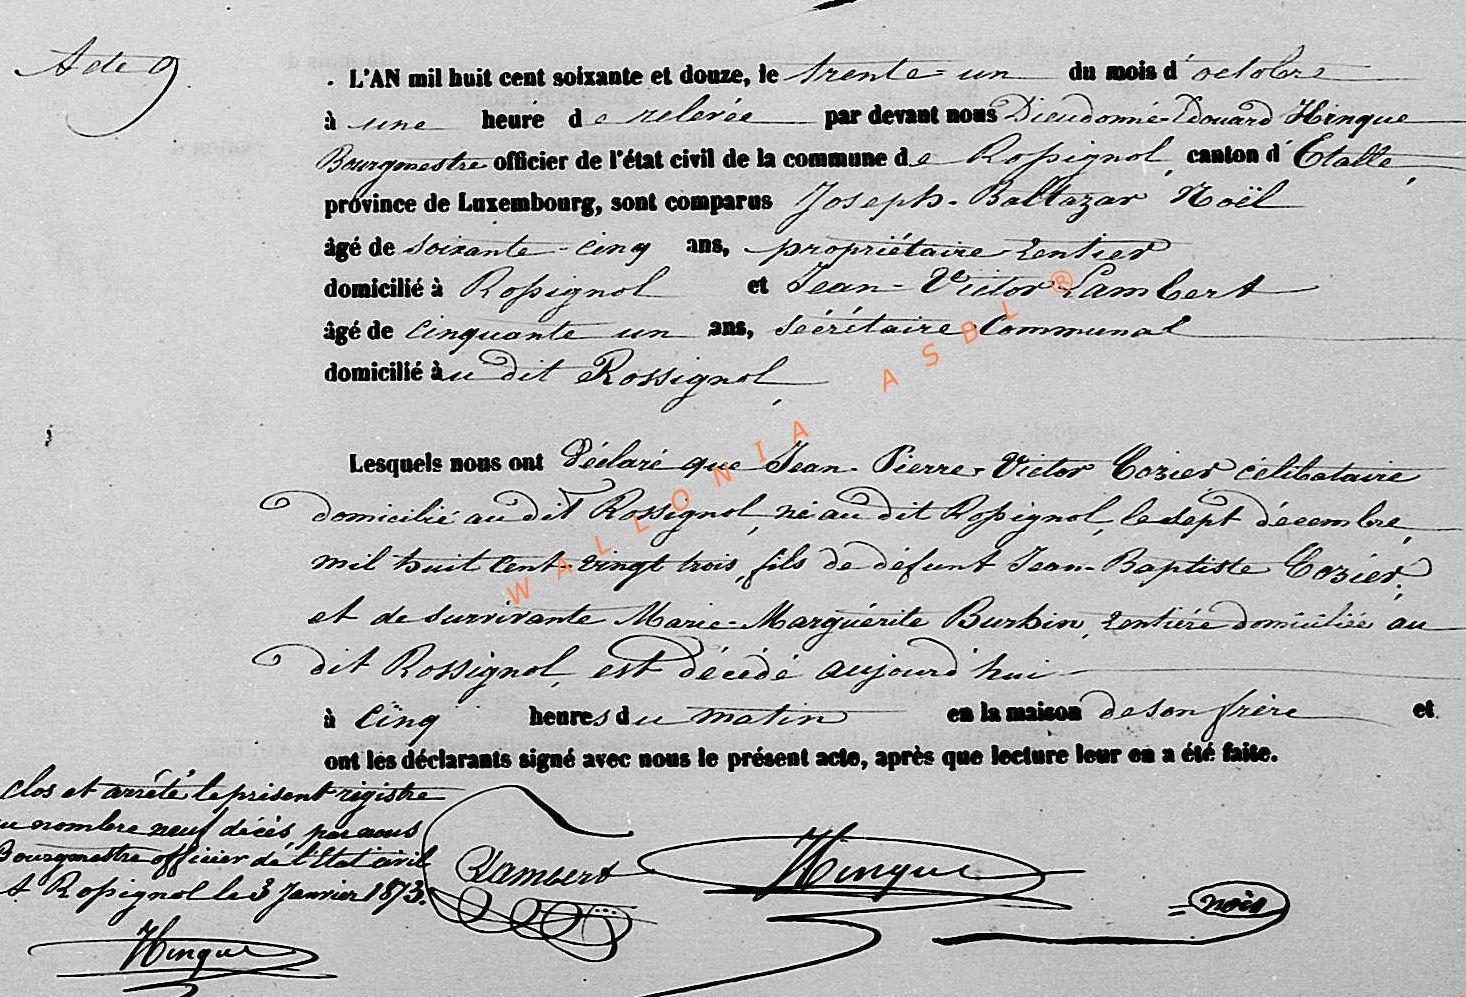 Acte 9
. L'AN mil huit cent soixante et douze, le trente-un du mois d'octobre
à une heure de relevée par devant nous Dieudonné-Edouard Hinque
Bourgmestre officier de l'état civil de la commune de Rossignol, canton d'Etalle,
province de Luxembourg, sont comparus Joseph-Baltazar Noël
âgé de soixante-cinq ans, propriétaire rentier
domicilié à Rossignol et Jean-Victor Lambert
âgé de cinquante un ans, sécrétaire Communal
domicilié au dit Rossignol,
Lesquels nous ont Déclaré que Jean-Pierre-Victor Cozier célibataire
domicilié au dit Rossignol, né au dit Rossignol, le sept décembre
mil huit Cent-vingt trois, fils de défunt Jean-Baptiste Cozier,
et de survivante Marie-Marguérite Burhin, rentière domiciliée au
dit Rossignol, est décédé aujourd'hui
à Cinq heures du matin en la maison de son frère et
ont les déclarants signé avec nous le présent acte, après que lecture leur en a été faite.
Clos et arrêté le présent registre
au nombre neuf décès par nous
Bourgmestre officier de l'Etat civil
A Rossignol le 3 Janvier 1873.
Hinque
Lambert
Hinque
Noël
WALLONIA ASBL ®